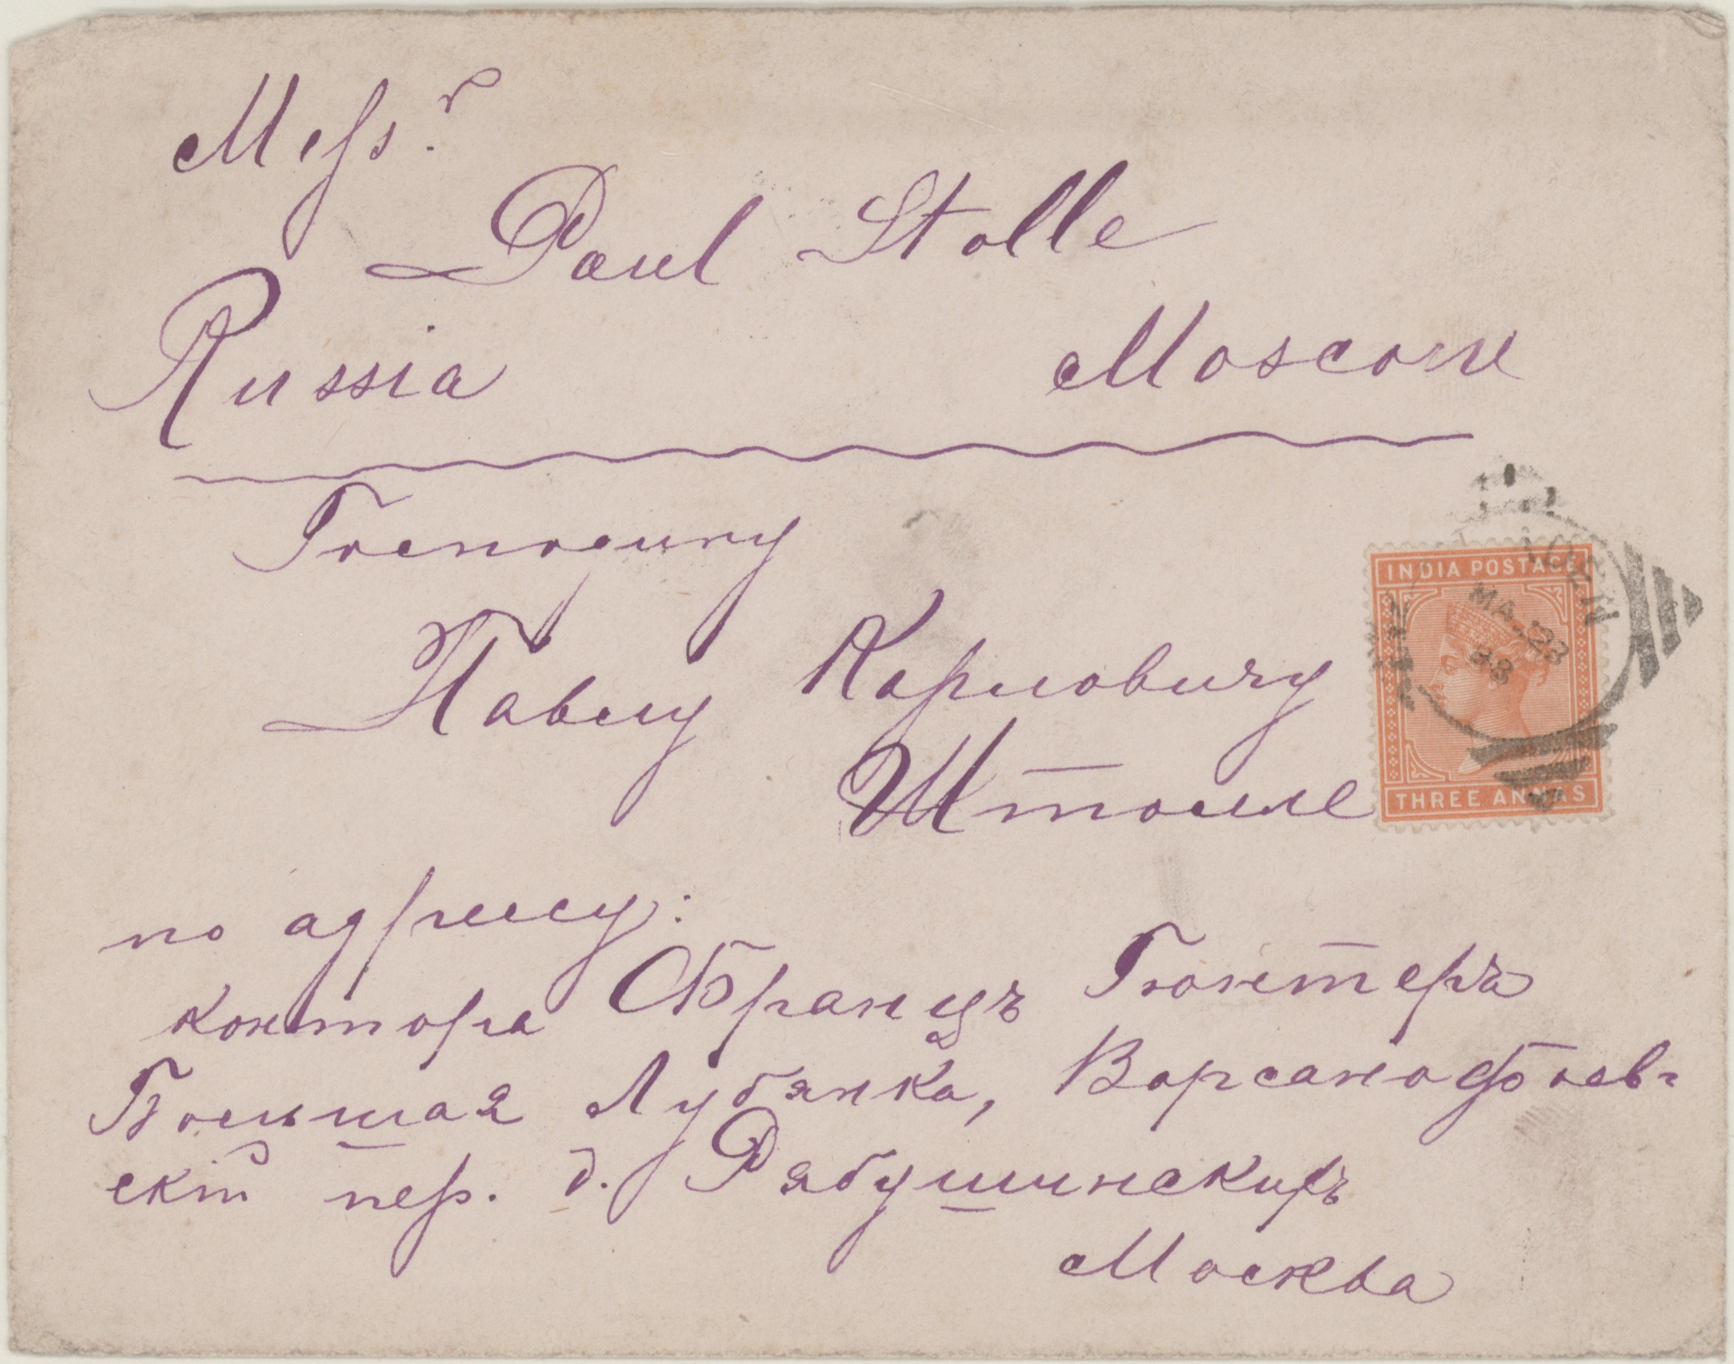 Messr.
Paul Stolle
Russia Moscow
Господину
Павлу Карловичу
Штолле
INDIA POSTAGE
MA 23
93
THREE ANNAS
по адресу:
контора Францъ Гюнтеръ
Большая Лубянка, Варсанофьев-
скій пер. д. Рябушинскихъ
Москва